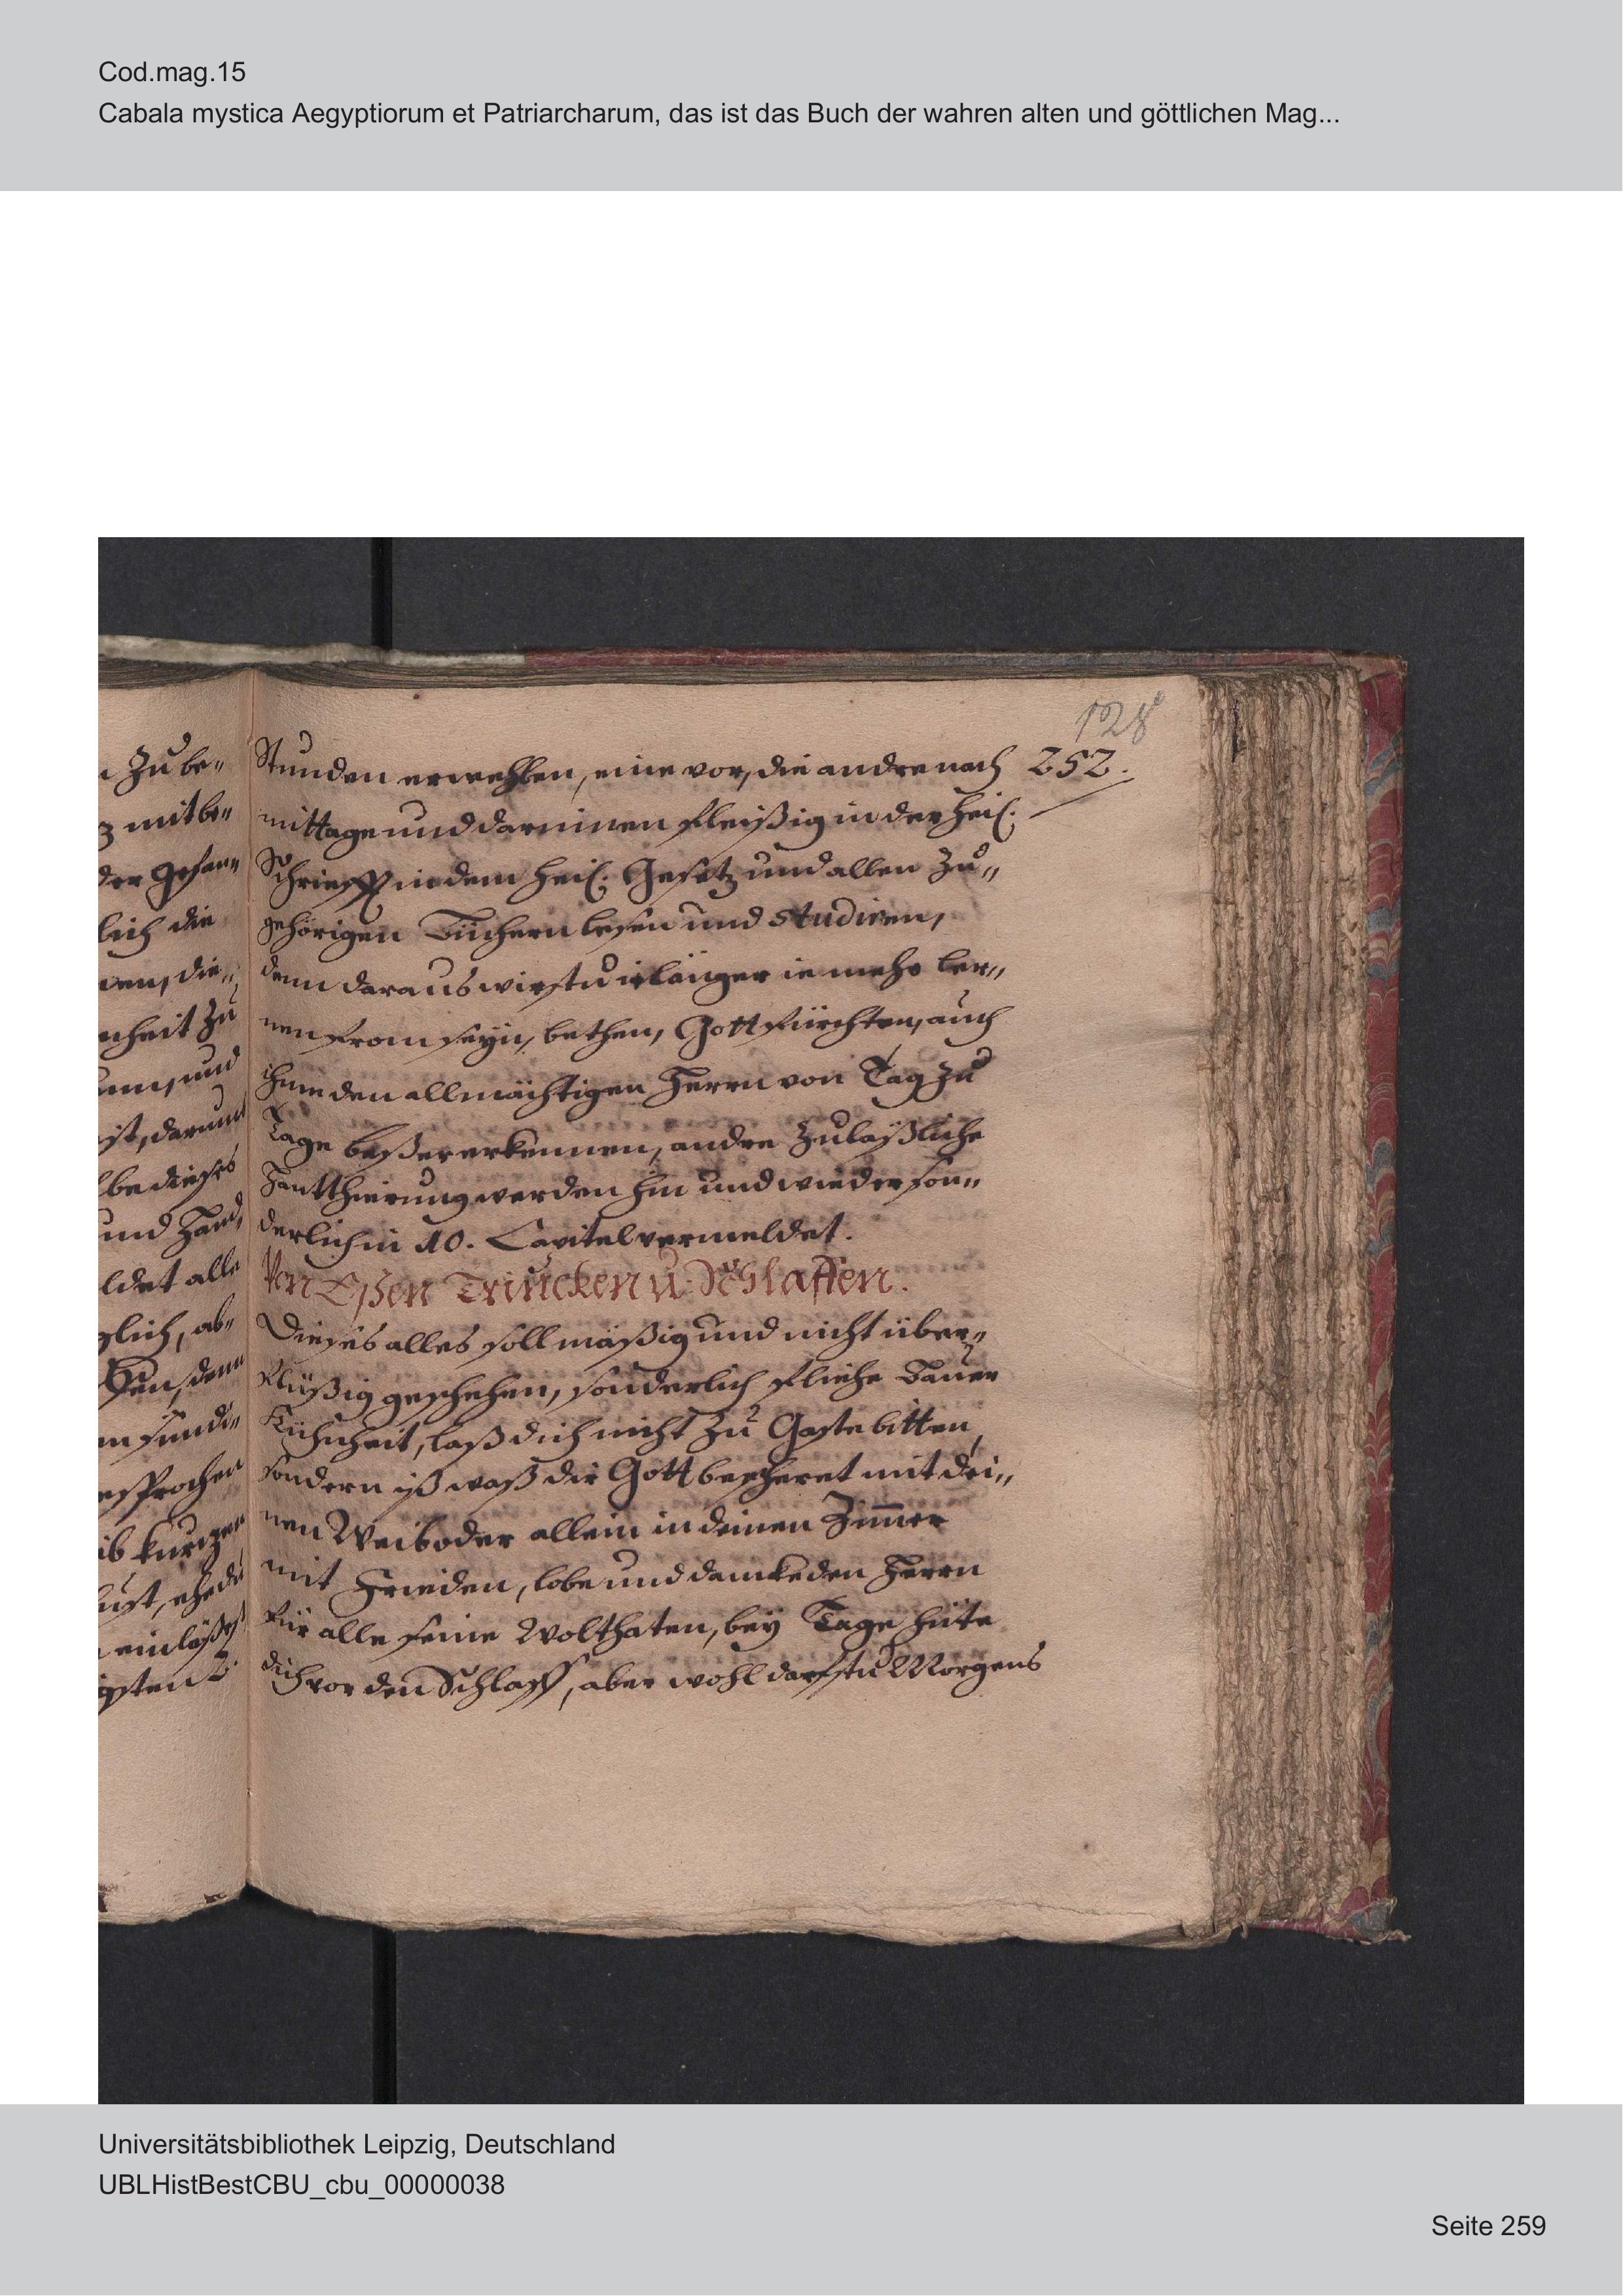 Cod.mag.15
Cabala mystica Aegyptiorum et Patriarcharum, das ist das Buch der wahren alten und göttlichen Mag...
128
252.
Zu be„
mitbe„
der gesan„
lich die
nen, die„
nheit zu
und
ist, darum
be dieses
und Hand
ldet alle
glich, ab„
denn
sündi„
esprochen
ib kurtzen
lust, ehe du
einläßest
gsten
Stunden erwehlen, eine vor, die andre nach
mittage und darinnen fleißig in der heil.
Schriefft in dem heil. Gesetz und allen Zu„
gehörigen Büchern lesen und studiren,
denn daraus wirstu ie länger ie mehr ler„
nen from seyn, bethen, Gott fürchten, auch
ihme den allmächtigen Herrn von Tag zu
Tage beßer erkennen, andre zuläßliche
Hantthierung werden hin und wieder son„
derlich in 10. Capitel vermeldet.
Von Eßen Trincken u. Schlaffen.
Dieses alles soll mäßig und nicht über„
flüßig geschehen, sonderlich fliehe Bauer
Kühnheit, laß dich nicht zu Gaste bitten,
sondern iß waß dir Gott bescheret mit dei„
nen Weib oder allein in deinen Zim̅er
mit Frieden, lobe und dancke den Herrn
für alle seine Wolthaten, bey Tage hüte
dich vor den Schlaff, aber wohl darfstu Morgens
Universitätsbibliothek Leipzig, Deutschland
UBLHistBestCBU_cbu_00000038
Seite 259